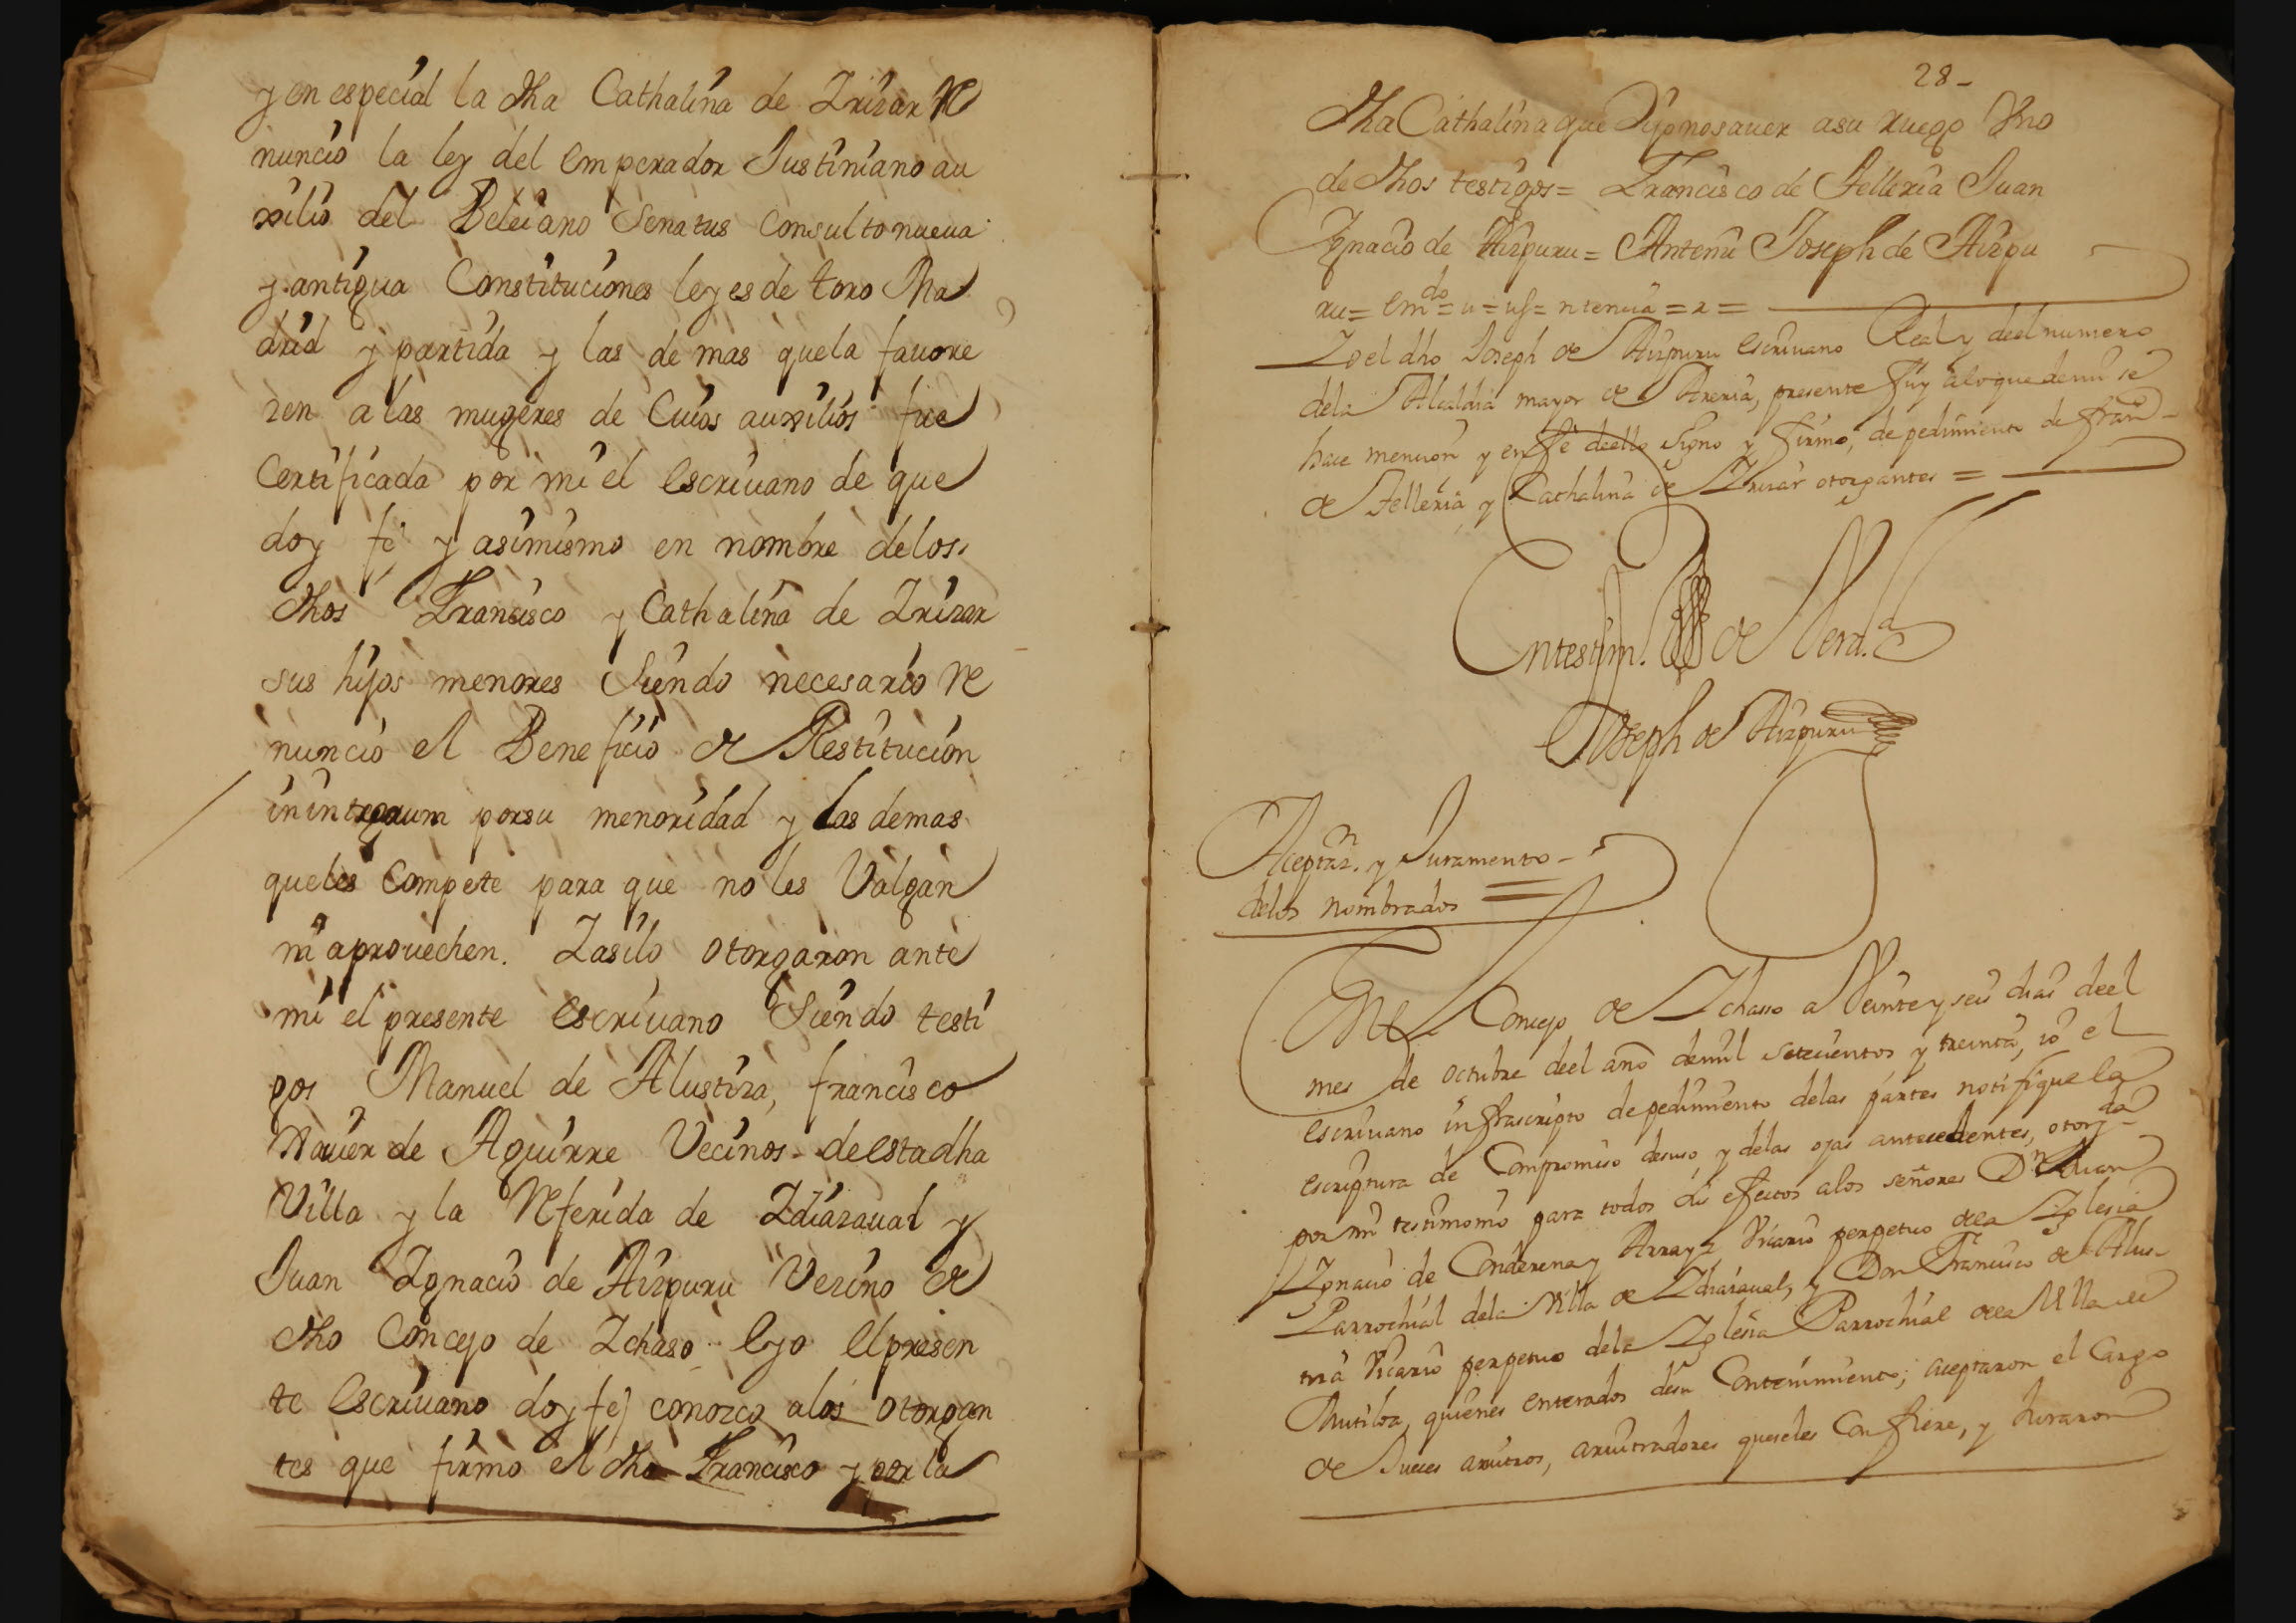 y en especial la dha Cathalina de Yrizar Re
nuncio la ley del emperador Justiniano au
xilio del Beleiano Senatus consulto nueua
y antigua Constituciones leyes de toro Ma
drid y partida y las de mas que la fauore
zen a las mugeres de Cuios auxilios fue
Certificada por mi el escriuano de que
doy fe y asimismo en nombre delos
dhos Francisco y Cathalina de Yrizar
sus hijos menores Siendo necesario Re
nuncio el Beneficio de Restitucion
in integrum por su menoridad y las demas
queles Compete para que no les Valgan
ni aprouechen. Yasilo otorgaron ante
mi el presente escriuano Siendo testi
gos Manuel de Alustiza, francisco
Xauier de Aguirre Vecinos de esta dha
Villa y la Referida de Ydiazaual y
Juan Ygnacio de Aizpuru Vezino de
dho Concejo de Ychaso e yo el presen
te Escriuano doy fe conozco alos otorgan
tes que firmo el dho Francisco y por la
28-
dha Cathalina que dijo no sauer asu ruego Vno
de dhos testigos = Francisco de Telleria Juan
Ygnacio de Aizpuru = Antemi Joseph de Aizpu
ru = emdo = u = uf = ntencia = r =
Yo el dho Joseph de Aizpuru escriuano Real y deel numero
dela Alcaldia mayor de Areria, presente fui alo que de mi se
hace mencion y en fe deello Signo y firmo, de pedimiento de fran-
de Telleria y Cathalina de Yrizar otorgantes =
En testim. de Verd.d
Joseph de Aizpuru
Aceptaz.n y Juramento -
delos nombrados =
En el Concejo de Ychasso a Veinte y seis dias deel
mes de octubre deel año demil setecientos y treinta, io el
escriuano infrascripto de pedimiento delas partes notifique la
escriptura de Compromiso desuso y delas ojas antecedentes, otorgda
por mi testimonio para todos sus efectos alos señores Dn Juan
Ygnacio de Conderena y Arraya Vicario perpetuo dela Yglesia
Parrochial dela Villa de Ydiazaual, y Don Francisco de Alus-
tiza Vicario perpetuo dela Yglesia Parrochial dela Villa de
Mutiloa, quienes enterados desu Contenimiento; aceptaron el Cargo
de Jueces aruitros, aruitradores queseles Confiere, y Juraron